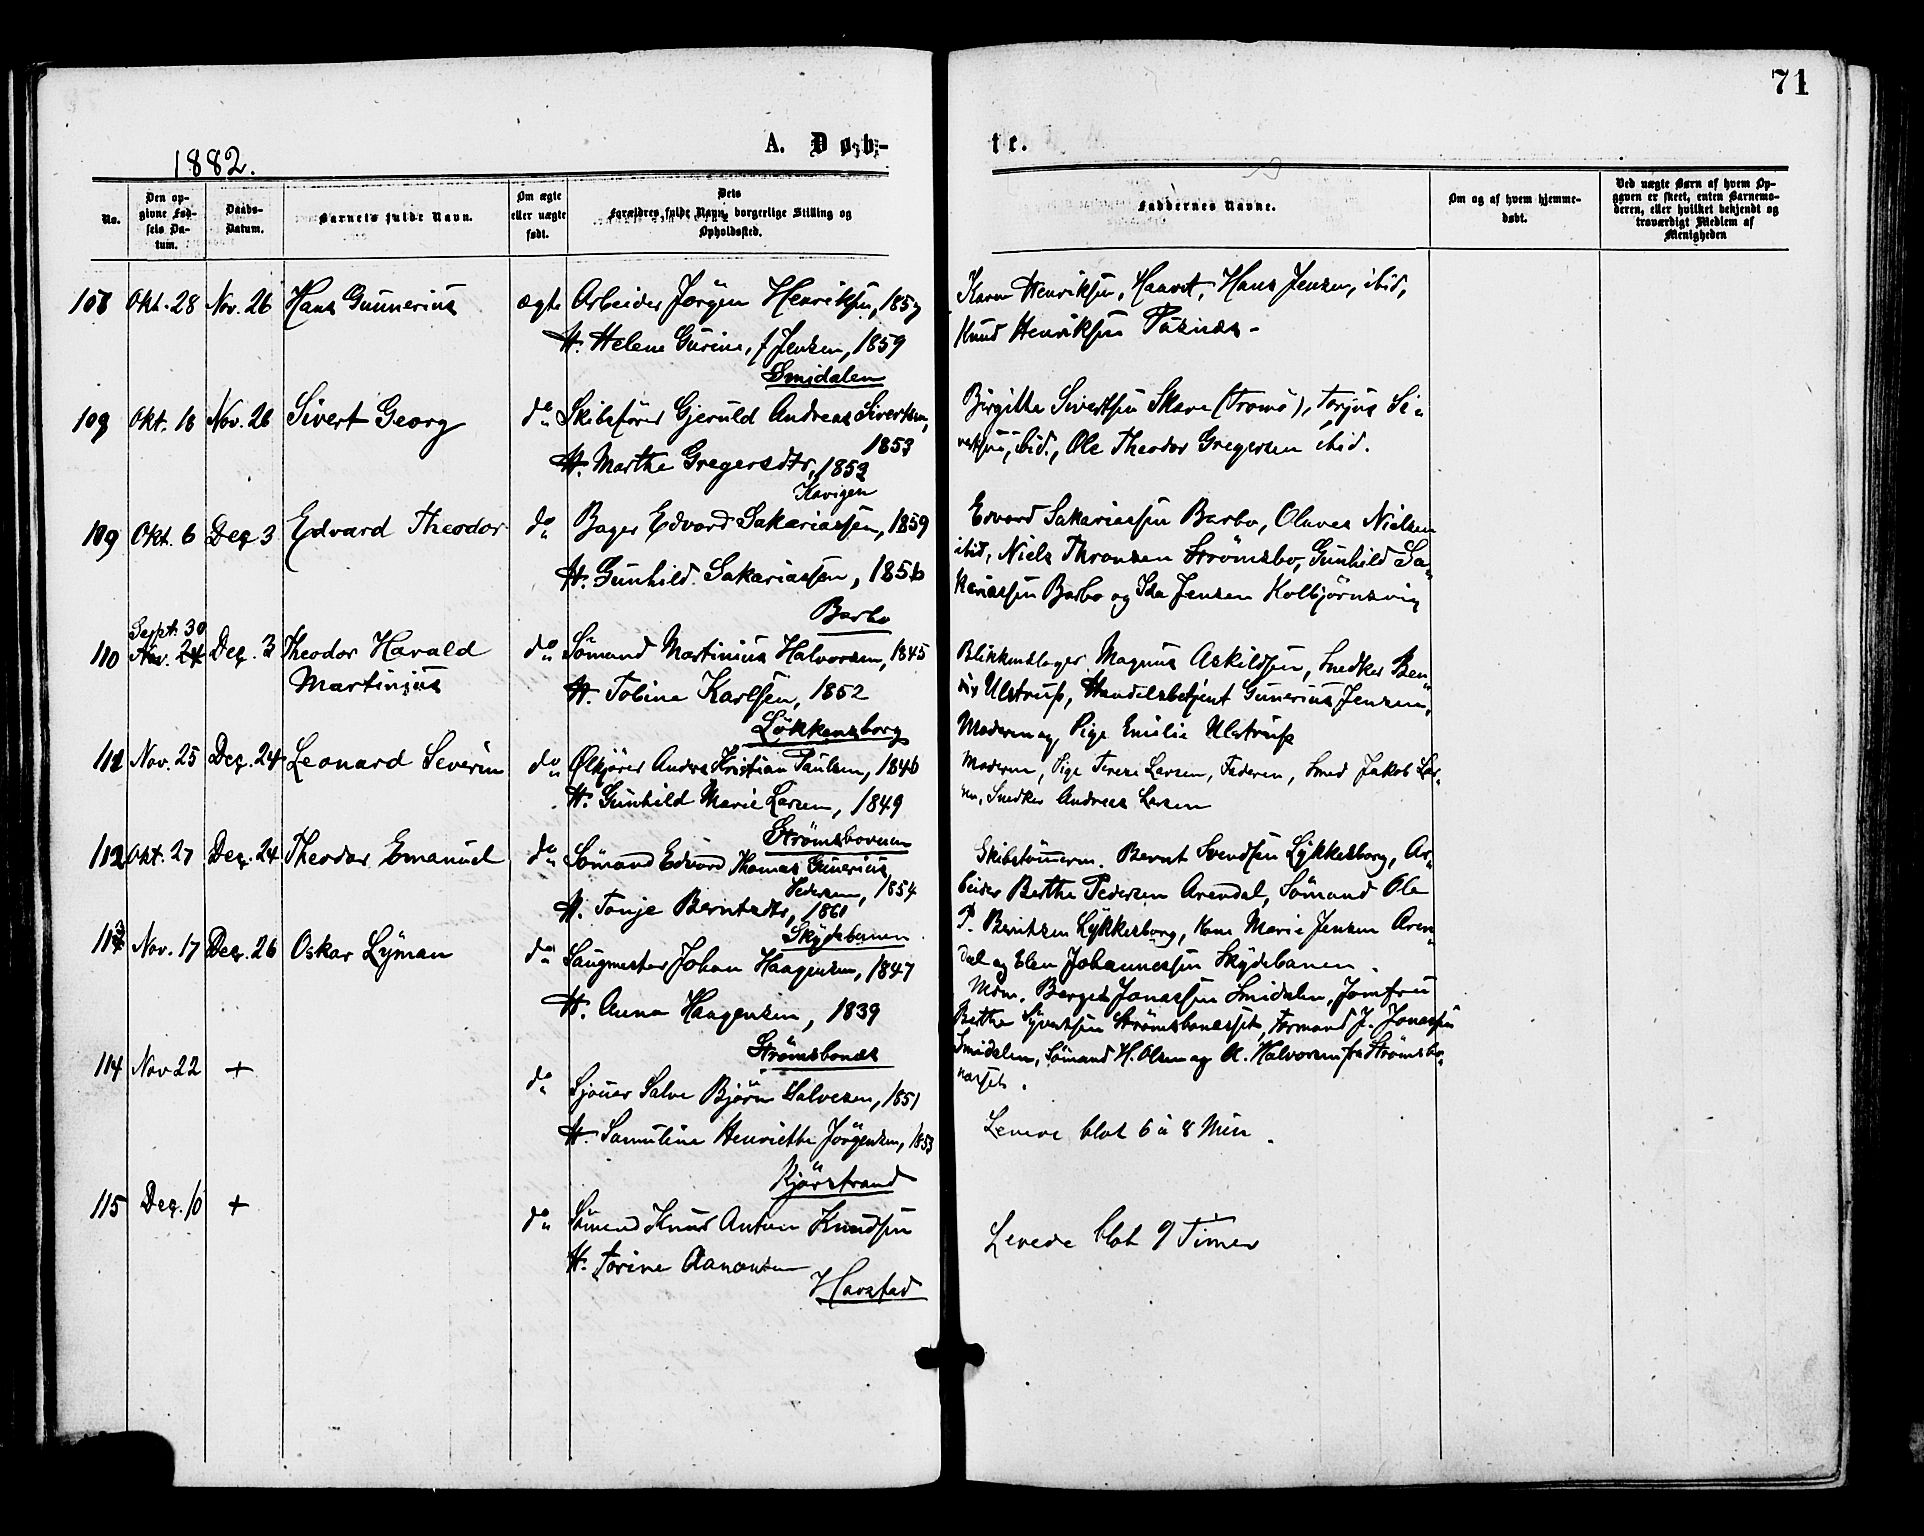 71
1882.
A. Døb-
te.
No.
Den op-
givne Fød-
sels Da-
tum.
Daabs-
Datum.
Barnets fulde Navn.
Om ægte
eller uægte
født.
Dets
Forældres fulde Navn, borgerlige Stilling og
Opholdssted.
Faddernes Navne.
Om og af hvem hjemme-
døbt.
Ved uægte Børn af hvem Op-
gaven er skeet, enten Barnemo-
deren, eller hvilket bekjendt og
troværdigt Medlem af
Menigheden
108 Okt. 28 Nov. 26 Hans Gunnerius ægte Arbeider Jörgen Henriksen, 1857
H. Helene Gurine, f Jensen, 1859
Smidalen
Karen Henriksen, Haavet, Hans Jensen, ibid,
Knud Henriksen
109 Okt. 16 Nov. 26 Sivert Georg do Skibsfører Gjeruld Andreas Sivertsen,
1853
H. Marthe Gregersdtr, 1852
Kavigen
Birgitte Sivertsen Skare (Tromö), Torjus Si-
vertsen, ibid., Ole Theodor Gregersen ibid.
109 Okt. 6 Dez 3 Edvard Theodor do Bager Edvard Sakariassen, 1859
H. Gunhild Sakariassen, 1856
Barbo
Edvard Sakariassen Barbo, Olaves Nielsen
ibid, Niels Thronsen Strömsbo, Gunhild Sa-
kariassen Barbo og Ida Jensen Kolbjörnsvig
Sept. 30
110 Nov. 24 Dez. 3 Theodor Harald do Sömand Martinius Halvorsen, 1845
Martinius
H. Tobine Karlsen, 1852
Lökkensborg
Blikkenslager Magnus Askildsen, Snedker Ben-
dix Ulstrup, Handelsbetjent Gunerius Jensen,
Moderen og Pige Emilie Ulstrup
111 Nov. 25 Dez. 24 Leonard Severin do Ölkjörer Andr. Kristian Paulsen, 1846
H. Gunhild Marie Larsen, 1849
Strömsboveien
Moderen, Pige Terese Larsen, Faderen, Smed Jakob Lar-
sen, Snedker Andreas Larsen
112 Okt. 27 Dez. 24 Theodor Emanuel do Sömand Edvard Thomas Gunerius
Pedersen, 1854
H. Tonje Berntsdtr, 1861
Skydebanen
Skibstömmerm. Bernt Svendsen Lykkesborg, Ar-
beider Berthe Pedersen Arendal, Sömand Ole
P. Berntsen Lykkesborg, Kone Marie Jensen Aren-
dal og Elen Johannessen Skydebanen.
113 Nov. 17 Dez. 26 Oskar Lyman do Saugmester Johan Haagensen, 1847
H. Anna Haagensen, 1839
Strömsbonæs
Mdm. Berget Jonassen Smidalen, Jomfru
Berthe Syvertsen Strömsbonesset, Formand J. Jonassen
Smidalen, Sömand H. Olsen og A. Halvorsen fra Strömsbo-
næsset.
114 Nov 22 + do Sjouer Salve Björn Salvesen, 1851
H. Samuline Henriette Jörgensen, 1853
Kjörstrand
Levede blot 6 à 8 Min.
115 Dez. 10 + do Sömand Knud Anton Knudsen
H. Torine Aanonsen
Havstad
Levede blot 9 Timer